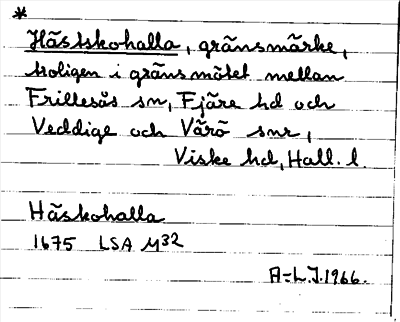 *
Hästskohalla, gränsmärke,
troligen i gränsmötet mellan
Frillesås sn, Fjäre hd och
Veddige och Värö snr,
Viske hd, Hall. l.
Häskohalla
1675 LSA M32
A-L.J. 1966.